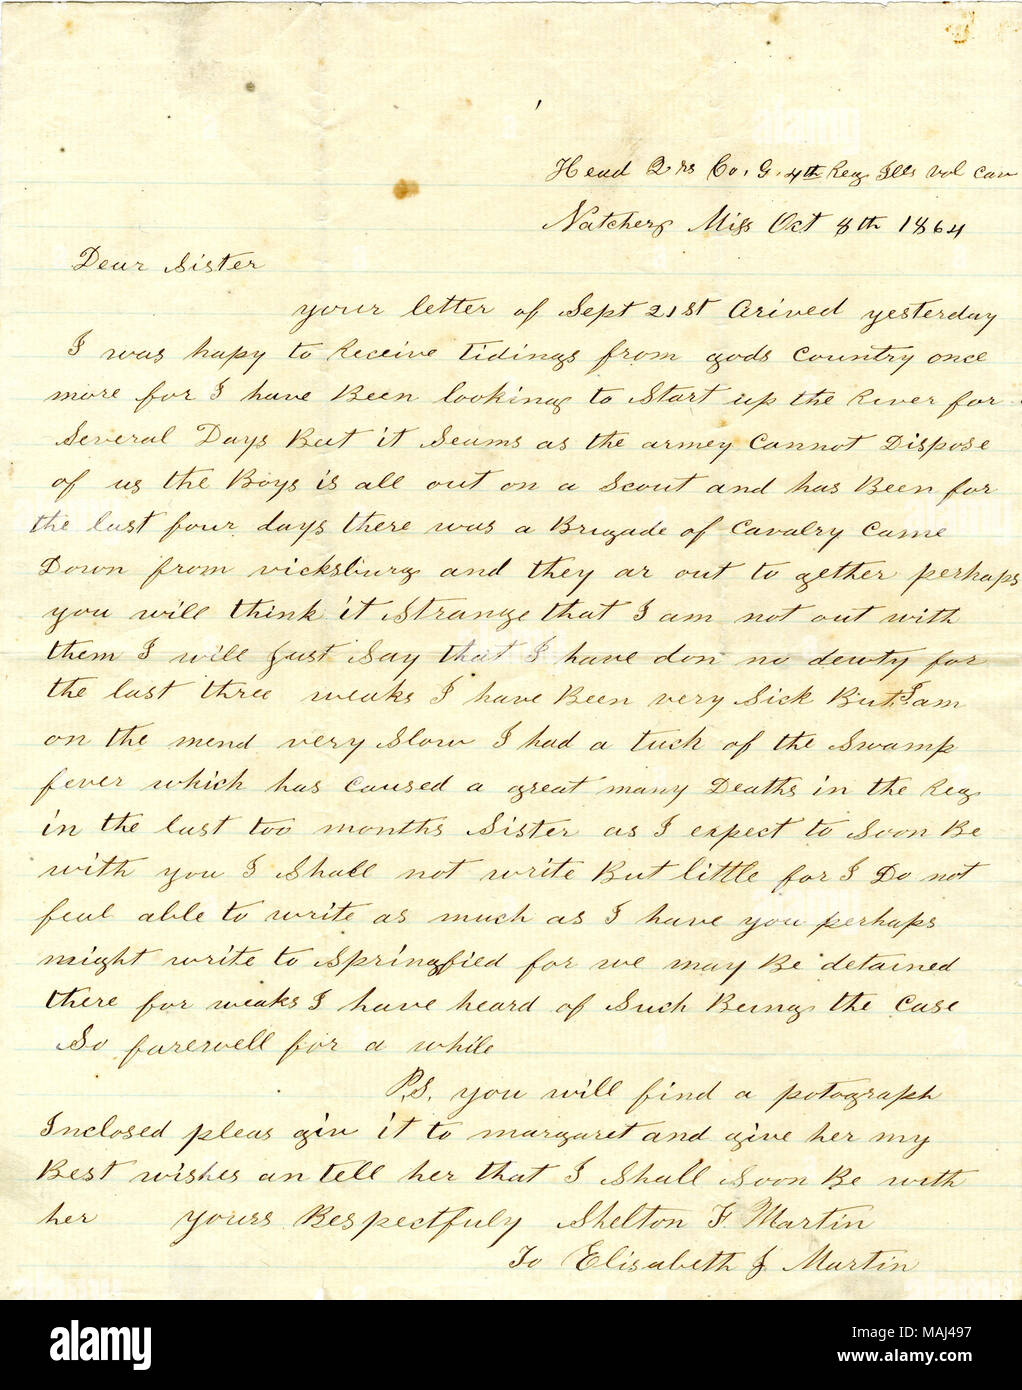 Head Qrs Co. G. 4th Reg Ills vol Cav
Natchez Miss Oct 8th 1864
Dear Sister
your letter of Sept 21st Arived yesterday
I was hapy to Receive tidings from gods Country once
more for I have Been looking to Start up the River for
Several Days But it Seams as the armey Cannot Dispose
of us the Boys is all out on a Scout and has Been for
the last four days there was a Brigade of Cavalry Came
Down from vicksburg and they ar out to gether perhaps
you will think it Strange that I am not out with
them I will Just Say that I have don no dewty for
the last three weaks I have Been very Sick But I am
on the mend very Slow I had a tuck of the Swamp
fever which has Caused a great many Deaths in the Reg
in the last too months Sister as I expect to Soon Be
with you I Shall not write But little for I Do not
feal able to write as much as I have you perhaps
might write to Springfied for we may Be detained
there for weaks I have heard of Such Being the Case
So farewell for a while
P.S. you will find a potograph
Inclosed pleas giv it to margaret and give her my
Best wishes an tell her that I Shall Soon Be with
her yours Respectfuly Shelton F. Martin
To Elisabeth J Martin
alamy
Image ID: MAJ497
www.alamy.com